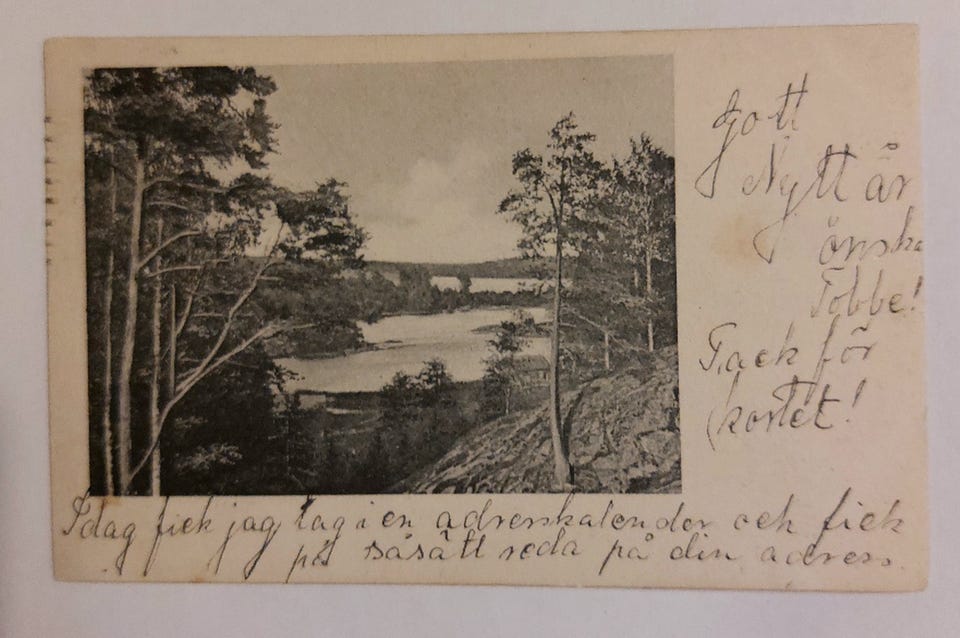 Gott
Nytt år
önska
Tobbe!
Tack för
kortet!
Idag fick jag tag i en adresskalender och fick
på såsätt reda på din adress.